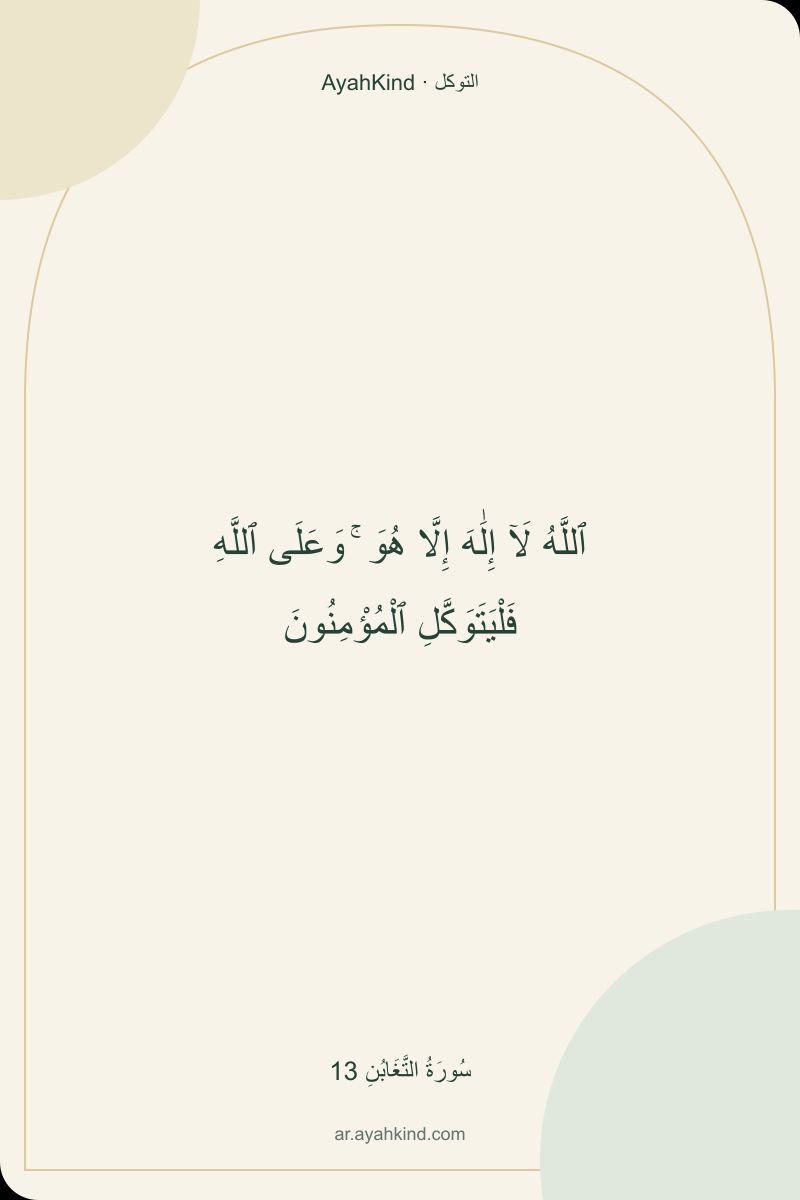 التوكل · AyahKind
ٱللَّهُ لَآ إِلَٰهَ إِلَّا هُوَ ۚ وَعَلَى ٱللَّهِ
فَلْيَتَوَكَّلِ ٱلْمُؤْمِنُونَ
سُورَةُ التَّغَابُنِ 13
ar.ayahkind.com